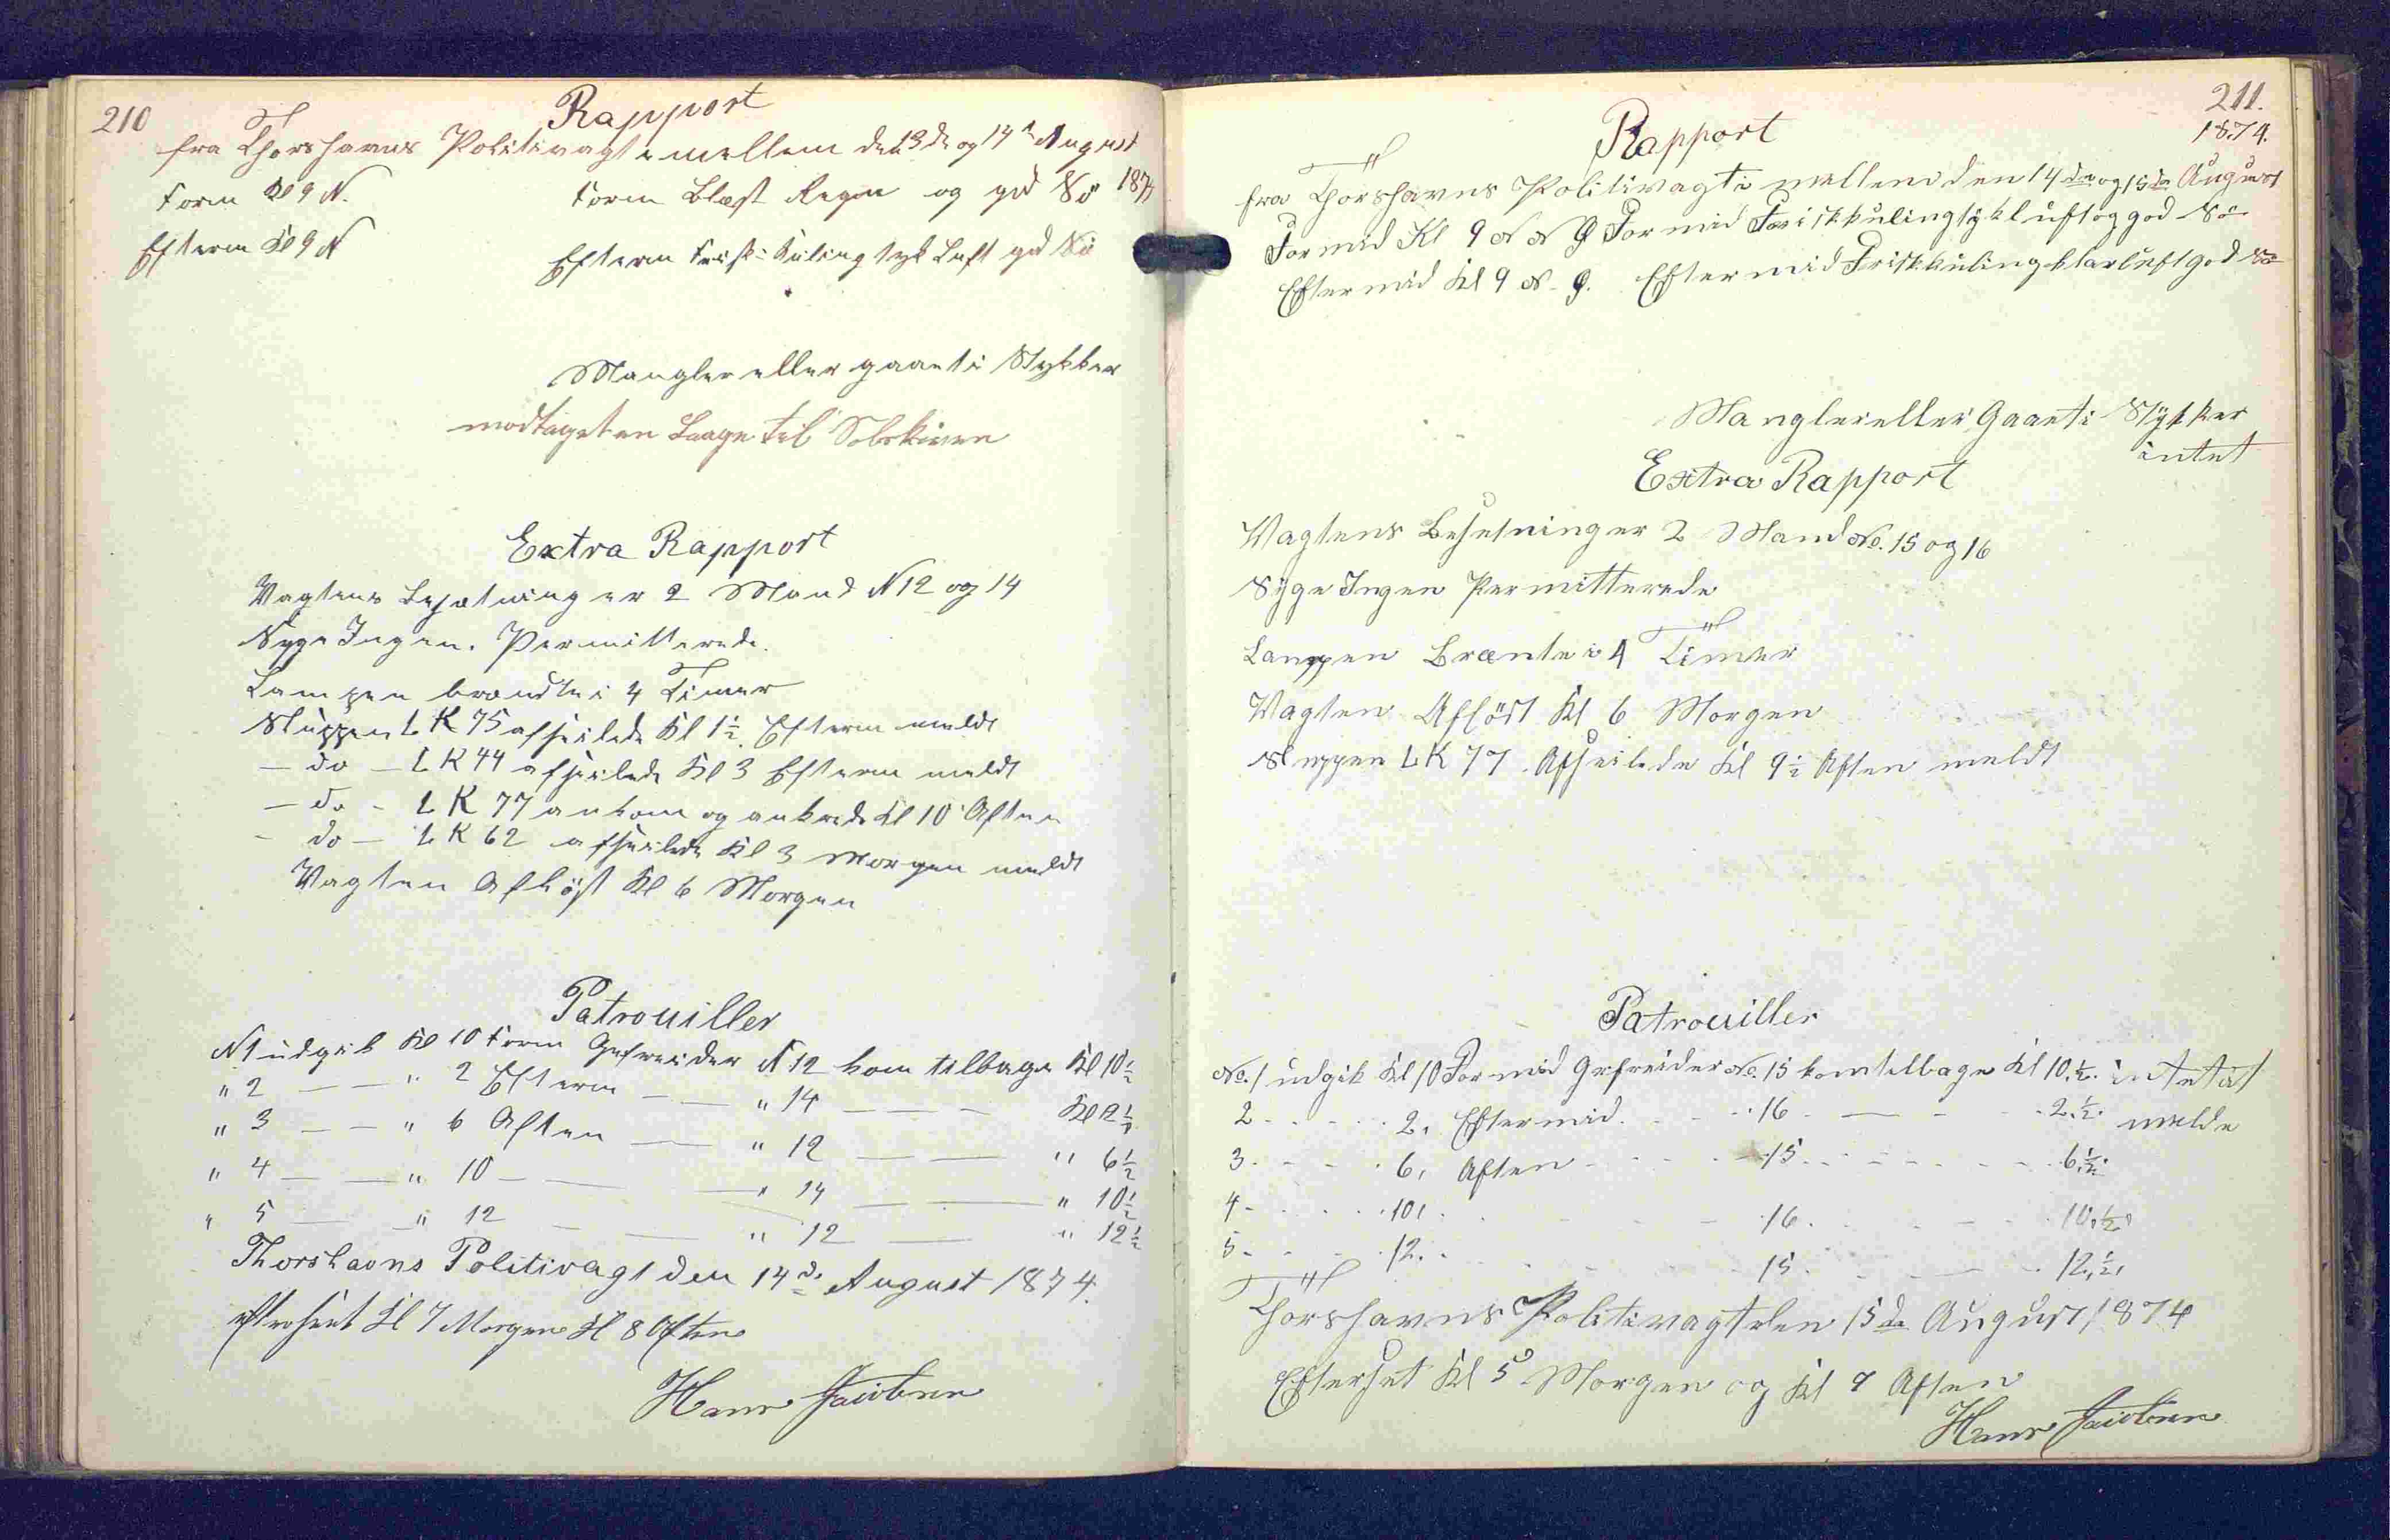 210
Rapport
fra Thorshavns Politivagt imellem den 13de og 14de August 1874
Form Kl 9 N. Form Blæst Regn og god Sö
Efterm Kl 9 N Efterm Frisk Kuling tyk Luft god Sö
Mangler eller gaaet i Stykker
modtaget en Laage til Solskiven
Extra Rapport
Vagtens Besætning er 2 Mand N 12 og 14
Syge Ingen. Permitterede.
Lampen brændte i 4 Timer
Sluppen L K 75 afseilede Kl 1½ Efterm meldt
— do — L K 44 afseilede Kl 3 Efterm meldt
— do - L K 77 ankom og ankrede Kl 10 Aften
- do — L K 62 afseilede Kl 3 Morgen meldt
Vagten Aflöst Kl 6 Morgen
Patrouiller
N 1 udgik Kl 10 Form Gefreider N 12 kom tilbage Kl 10½
" 2 — — " 2 Efterm — — " 14 — — — Kl 2½
" 3 — — " 6 Aften — " 12 — — " 6½
" 4 — — " 10 — — — " 14 — — " 10½
" 5 — — " 12 — — " 12 — " 12½
Thorshavns Politivagt den 14de August 1874.
efterseet Kl 7 Morgen Kl 8 Aften
Hans Jacobsen
211.
1874.
Rapport
fra Thorshavns Politivagt i mellem den 14de og 15de August
Formid Kl 9 N N Ø Formid Frisk kuling tyk luft og god Sö
Eftermid Kl 9 N - Ø. Eftermid Frisk kuling klar luft god Sö
Mangler eller Gaaet i Stykker
intet
Extra Rapport
Vagtens Besetning er 2 Mand No. 15 og 16
Syge Ingen Permitterede
Lampen Brænte i 4 Timer
Vagten Aflöst Kl 6 Morgen
Sluppen L K 77. Afseilede Kl 9½ Aften meldt
Patrouiller
No. 1 udgik Kl 10 Formid Gefreider No. 15 kom tilbage Kl 10.½. intet at
2 - - - - 2. Eftermid. - - 16 - — - - 2.½. melde
3. - - - 6. Aften - - - 15 - - - - - 6.½.
4 - - - - 10. - - - 16. - - - 10.½.
5 - - - 12. - - - 15. - - — - 12.½.
Thorshavns Politivagt den 15de August 1874
Efterset Kl 5 Morgen og Kl 9 Aften
Hans Jacobsen